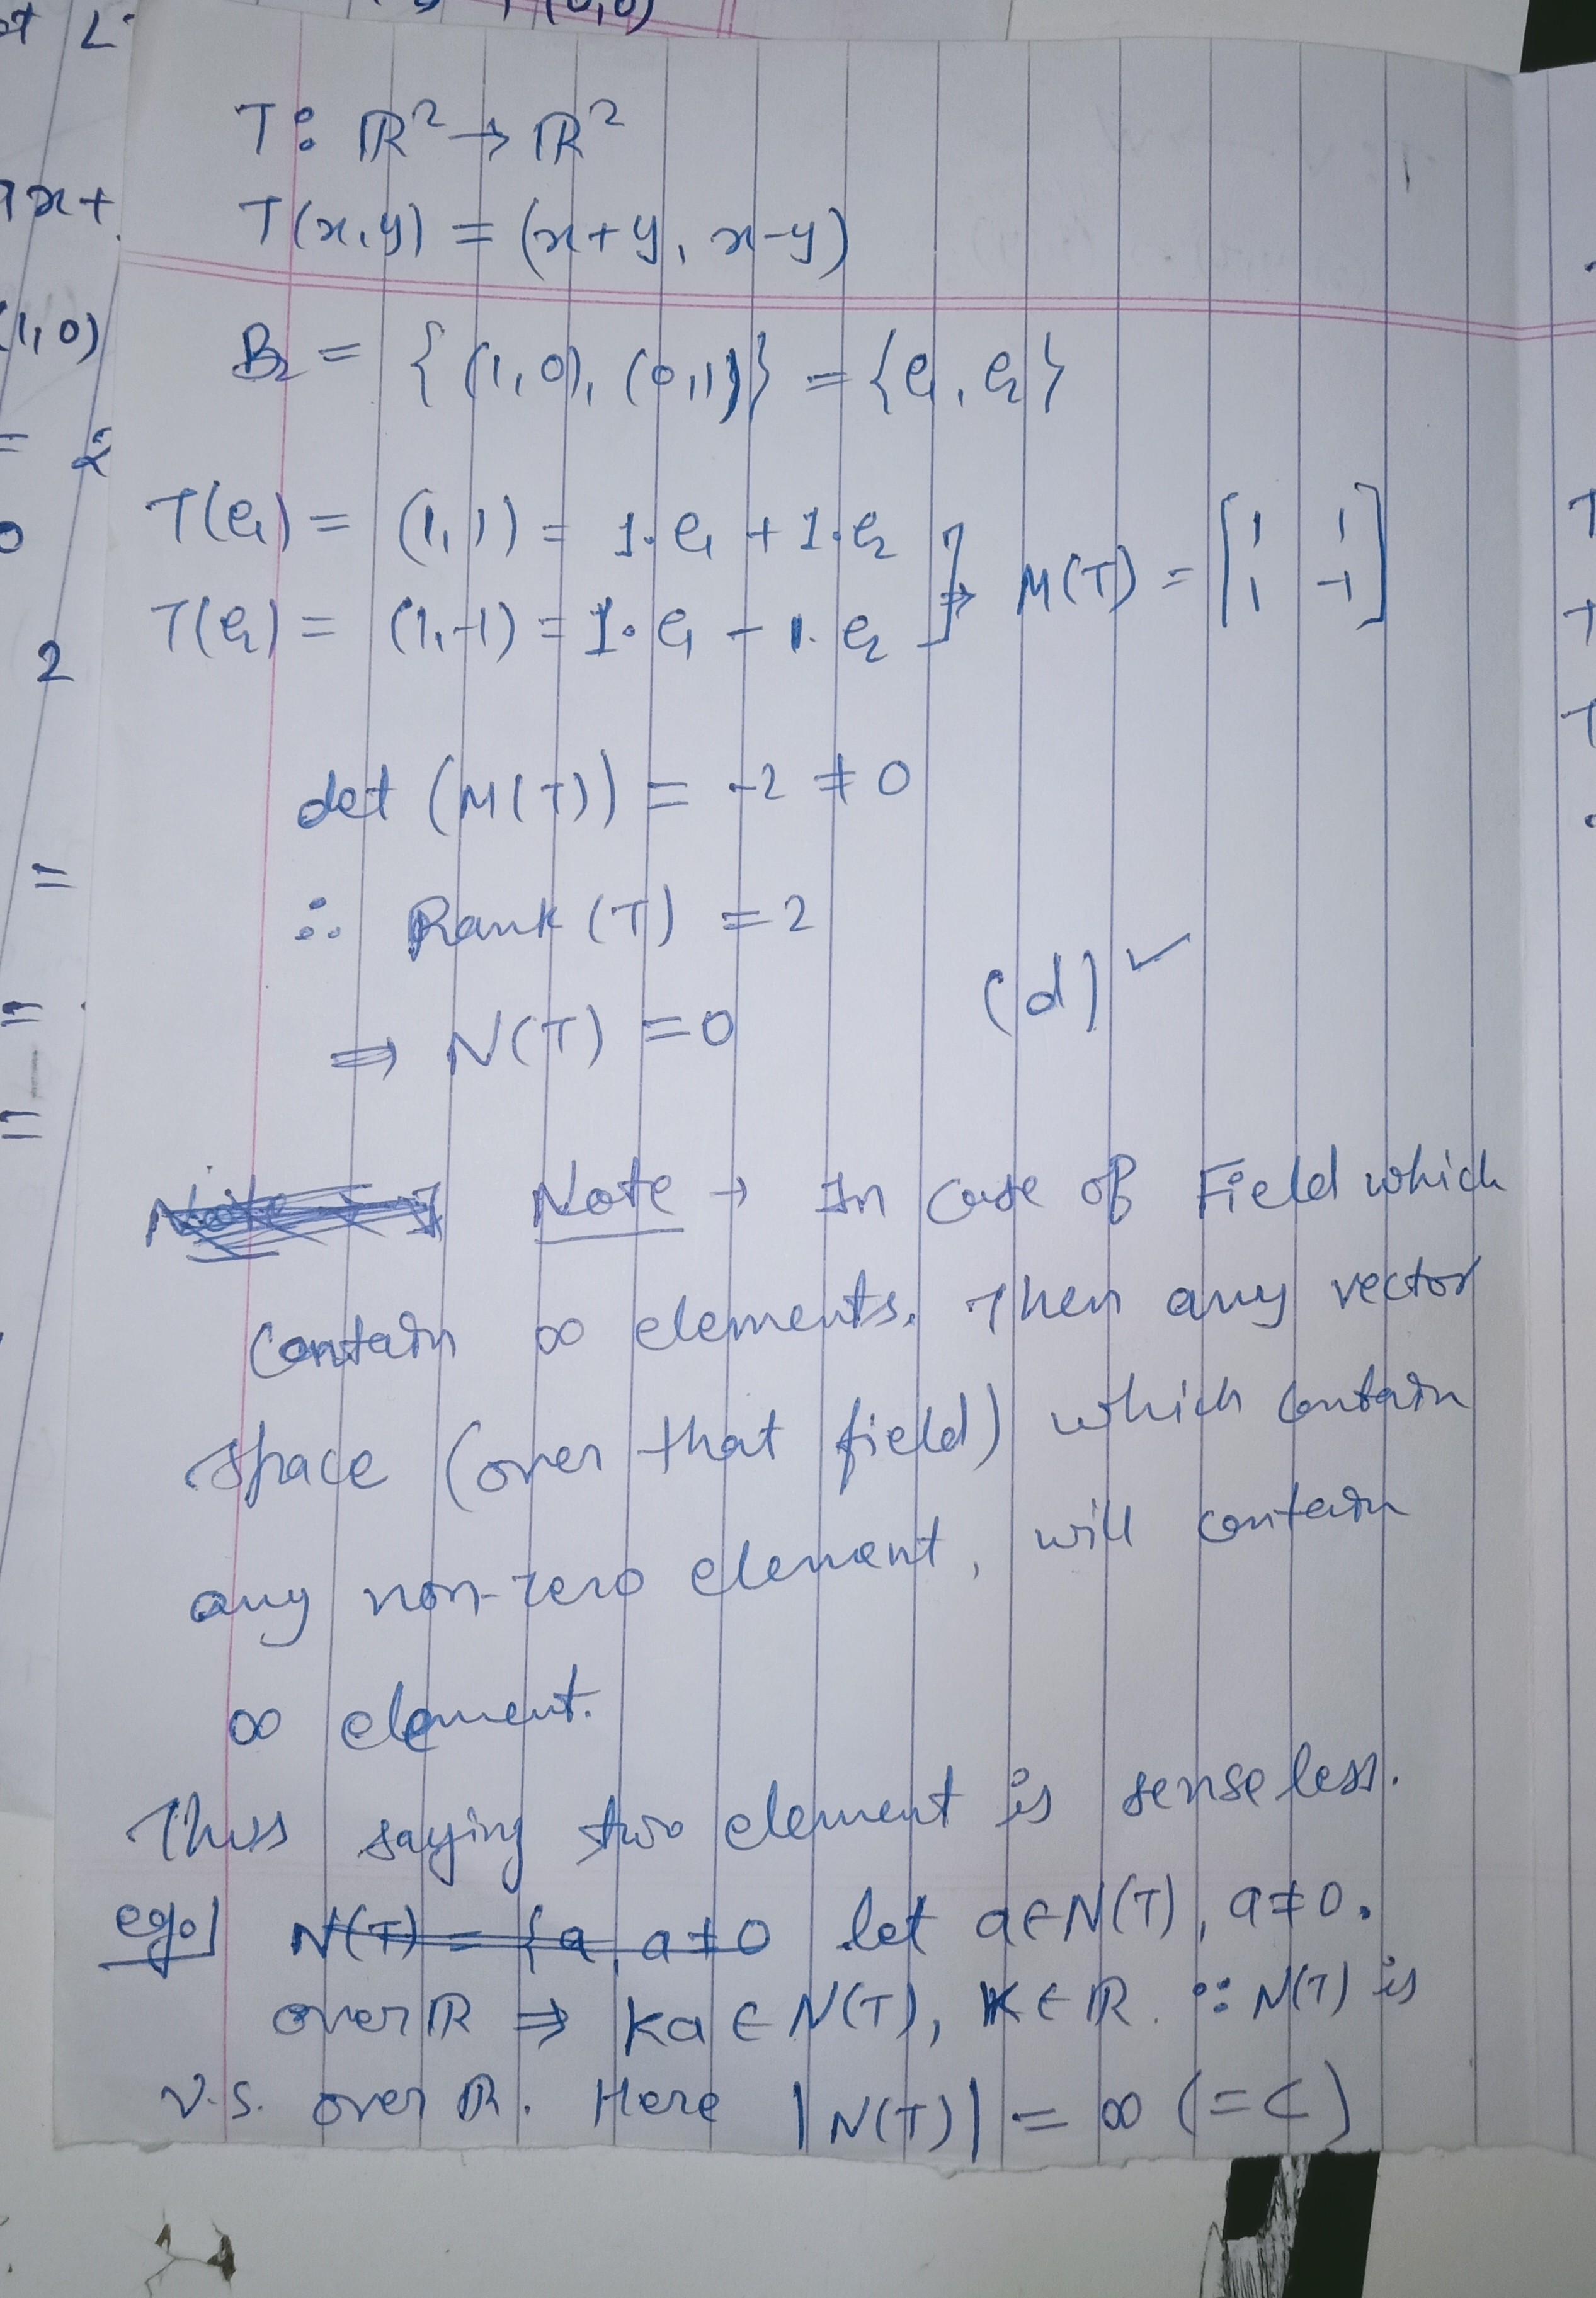 T: ℝ² → ℝ²
T(x,y) = (x+y, x-y)
B₂ = {(1,0), (0,1)} = {e₁, e₂}
T(e₁) = (1,1) = 1.e₁ + 1.e₂
T(e₂) = (1,-1) = 1.e₁ - 1.e₂ ] ⇒ M(T) = [1 1
1 -1]
det (M(T)) = -2 ≠ 0
∴ Rank (T) = 2
(d) ✓
⇒ N(T) = 0
Note → In case of Field which
contain ∞ elements. Then any vector
space (over that field) which contain
any non-zero element, will contain
∞ element.
Thus saying two element is senseless.
eg. N(T) = {a, a≠0 let a∈N(T), a≠0.
over ℝ ⇒ Ka ∈ N(T), K∈ℝ. ∵ N(T) is
V.S. over ℝ. Here |N(T)| = ∞ (=C)
7x+
(1,0)
= 2
0
2
=
=
=